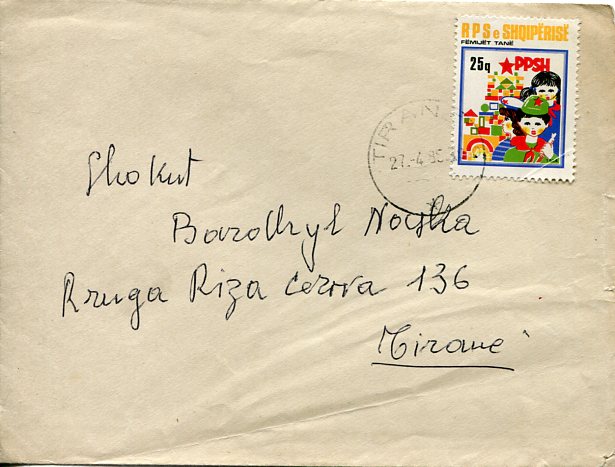 RPS e SHQIPËRISË
FËMIJËT TANË
25q PPSH
TIRANË
27.-4.85
Shokut
Bardhyl Noçka
Rruga Riza Cerova 136
Tiranë